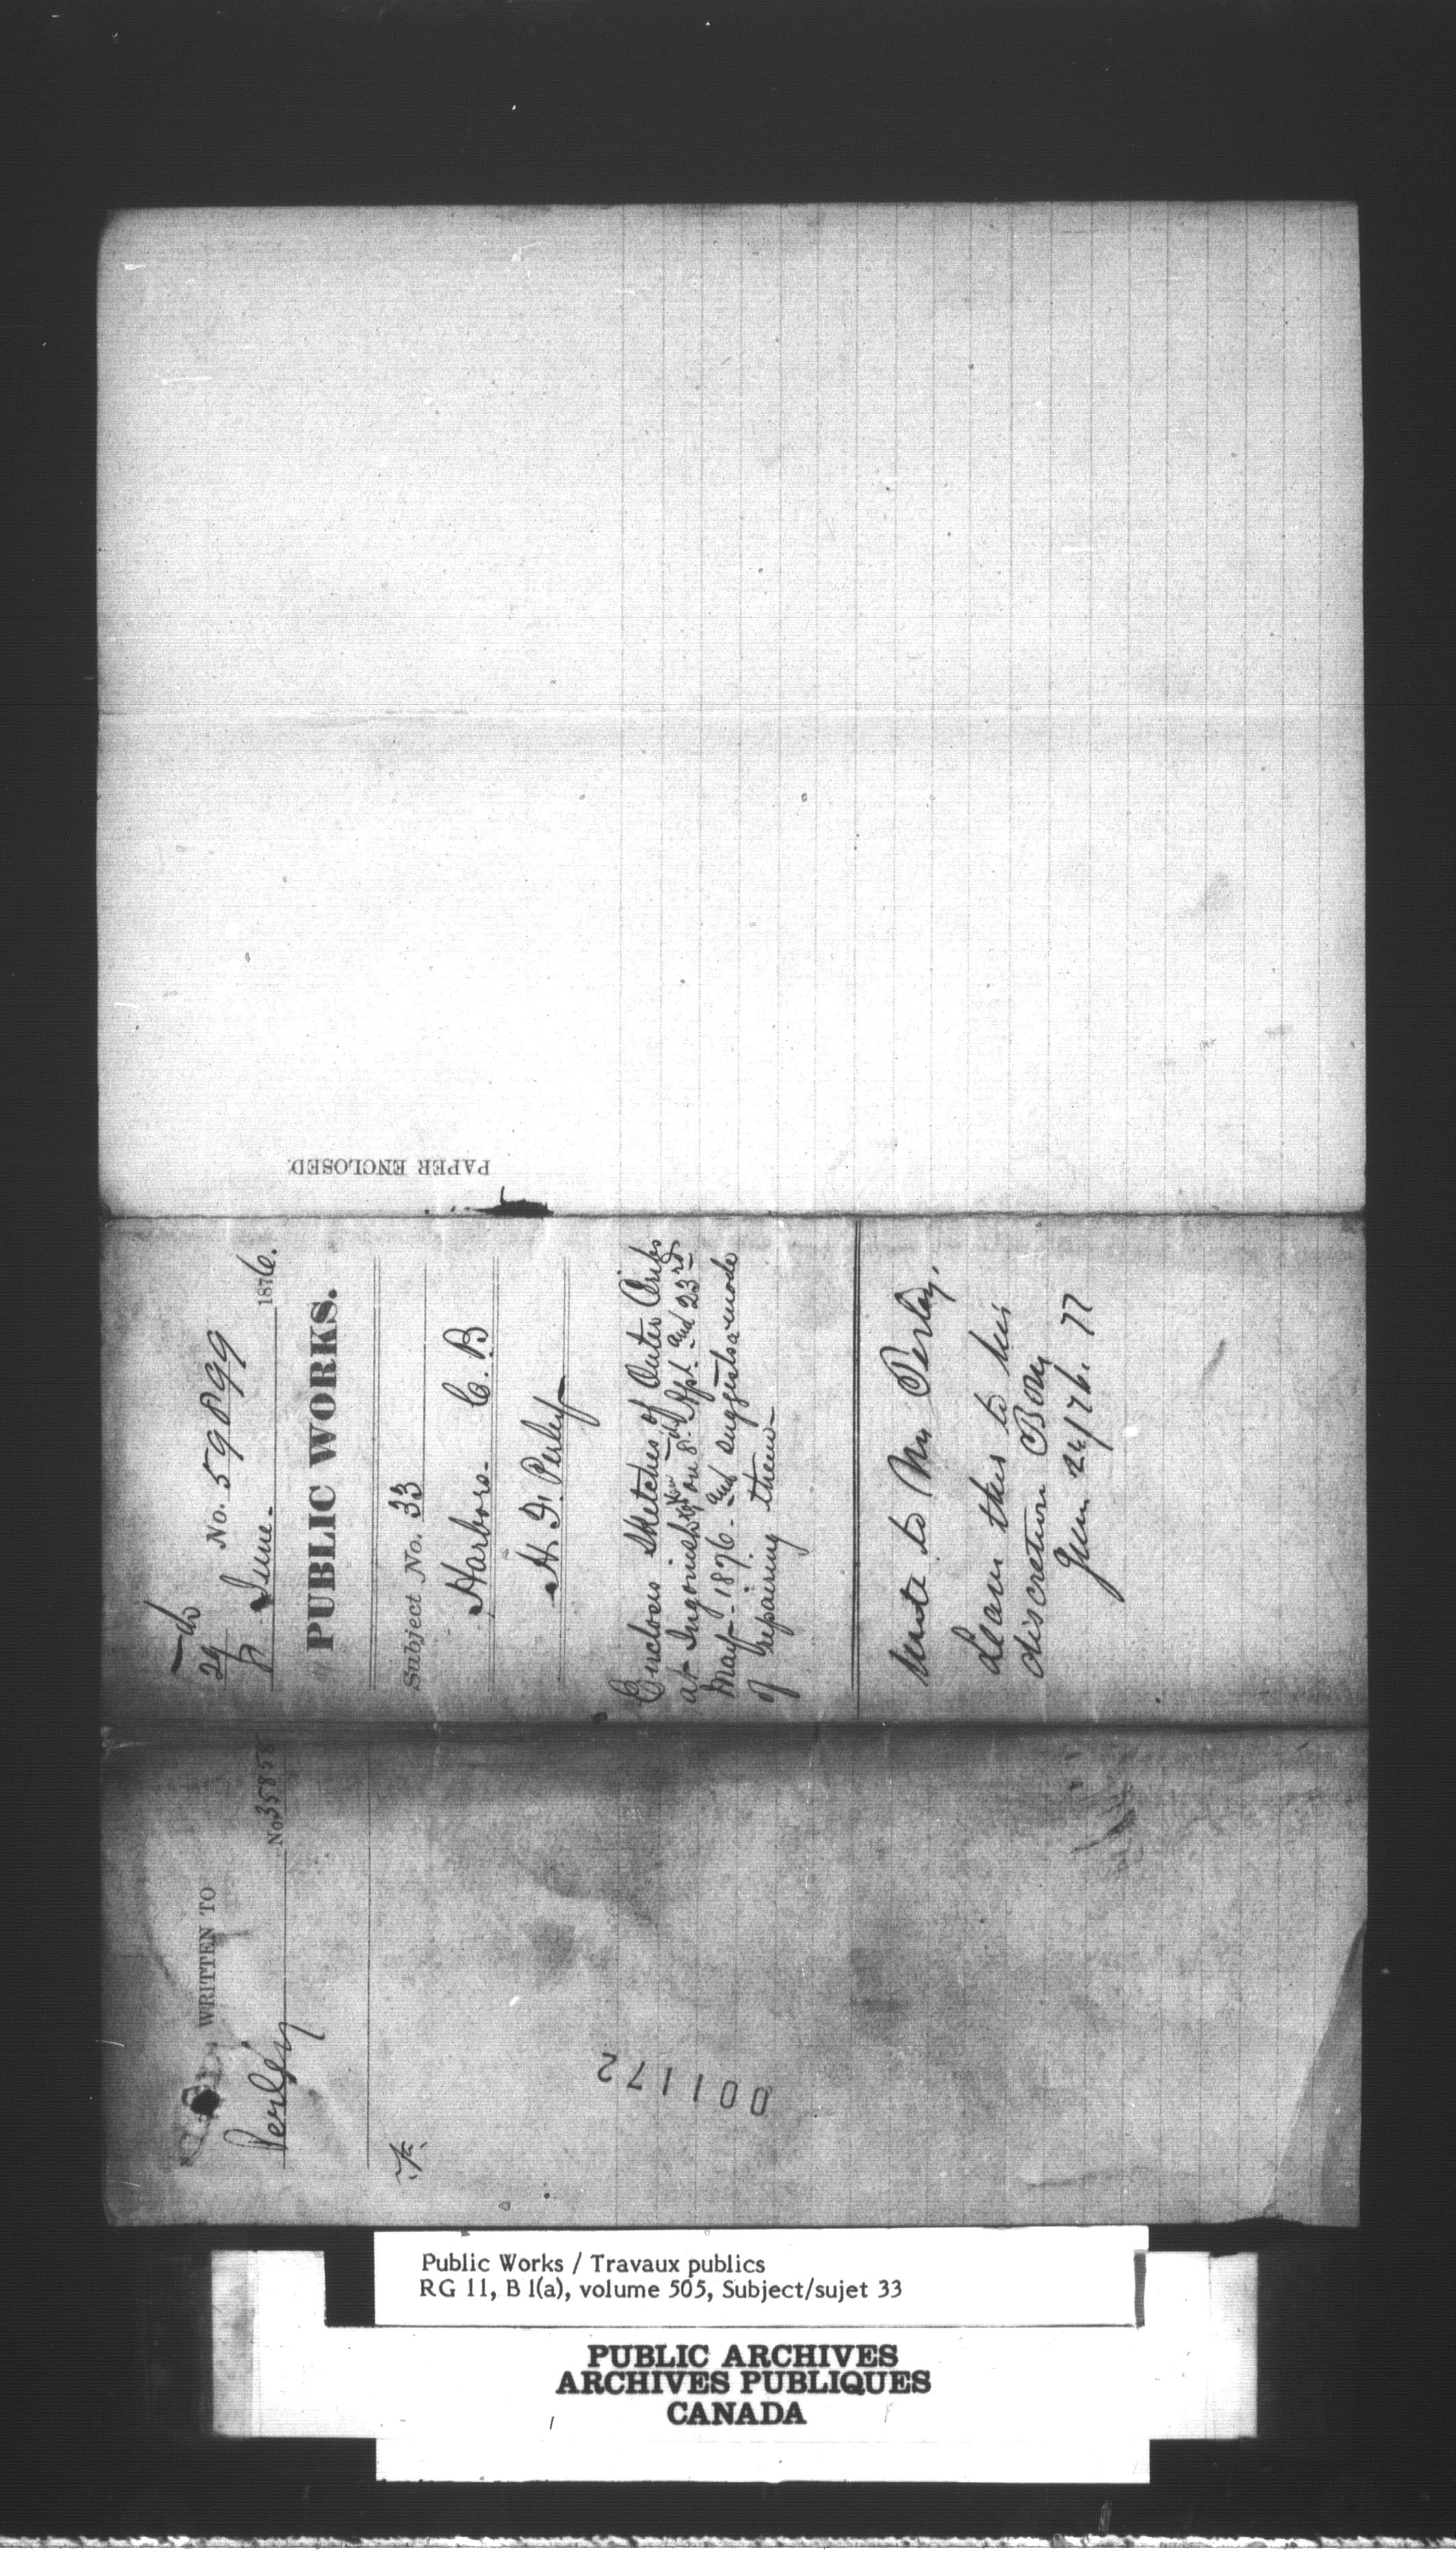 PAPER ENCLOSED.
No. 59899
29 June 1876.
PUBLIC WORKS.
Subject No. 33
Harbors. C. B
H. F. Perley
Encloses Sketches of Outer Cribs
at Ingonish on 8th Apl. and 23rd
May 1876 and suggests a mode
of repairing them
write to Mr Perley.
Leave this to his
discretion
WRITTEN TO
Perley No. 35858
001172
Public Works / Travaux publics
RG 11, B 1(a), volume 505, Subject/sujet 33
PUBLIC ARCHIVES
ARCHIVES PUBLIQUES
CANADA